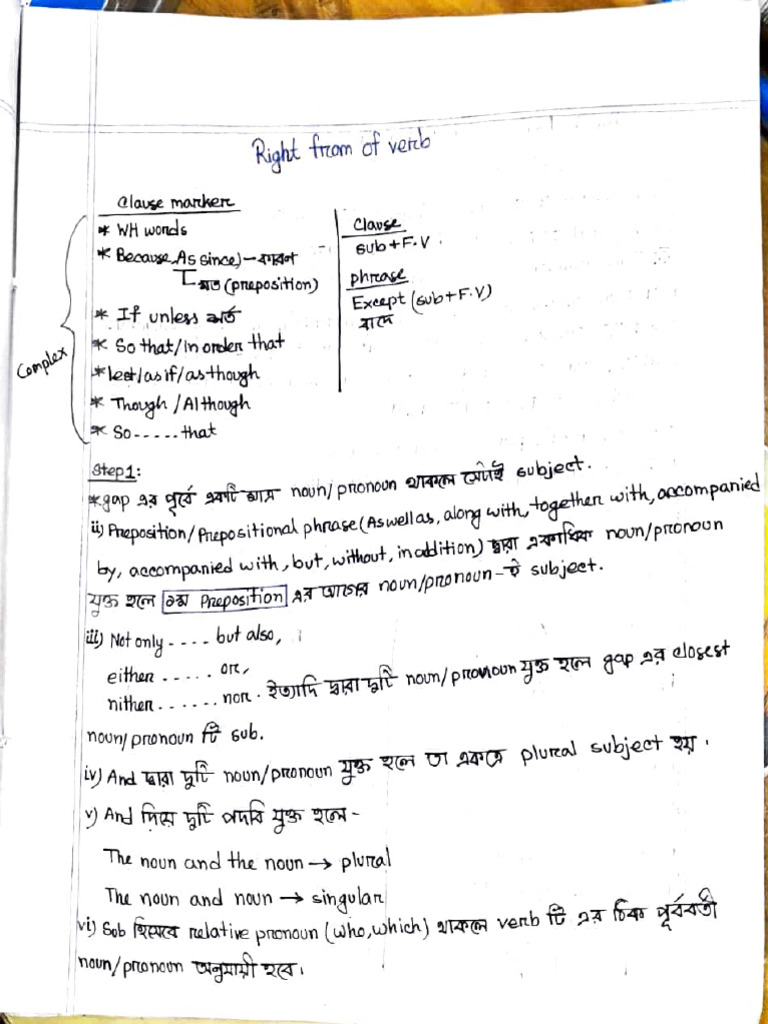 Right from of verb
Clause marker
* WH words
* Because, As since) – কারণ
মত (preposition)
* If unless শর্ত
* So that/in order that
* lest/as if/as though
* Though /Although
* So.....that
Complex
Clause
sub + F.V.
phrase
Except (sub+F.V)
বাদে
Step 1:
* gap এর পূর্বে একটি মাত্র noun/pronoun থাকলে সেটাই subject.
ii) Preposition/Prepositional phrase (As well as, along with, together with, accompanied
by, accompanied with, but, without, in addition) দ্বারা একাধিক noun/pronoun
যুক্ত হলে ১ম Preposition এর আগের noun/pronoun-ই subject.
iii) Not only .... but also,
either ..... or,
nither ...... nor. ইত্যাদি দ্বারা দুটি noun/pronoun যুক্ত হলে gap এর closest
noun/pronoun টি sub.
iv) And দ্বারা দুটি noun/pronoun যুক্ত হলে তা একত্রে plural subject হয়।
v) And দিয়ে দুটি পদবি যুক্ত হলে -
The noun and the noun → plural
The noun and noun → singular
vi) Sub হিসেবে relative pronoun (who, which) থাকলে verb টি এর ঠিক পূর্ববর্তী
noun/pronoun অনুযায়ী হবে।